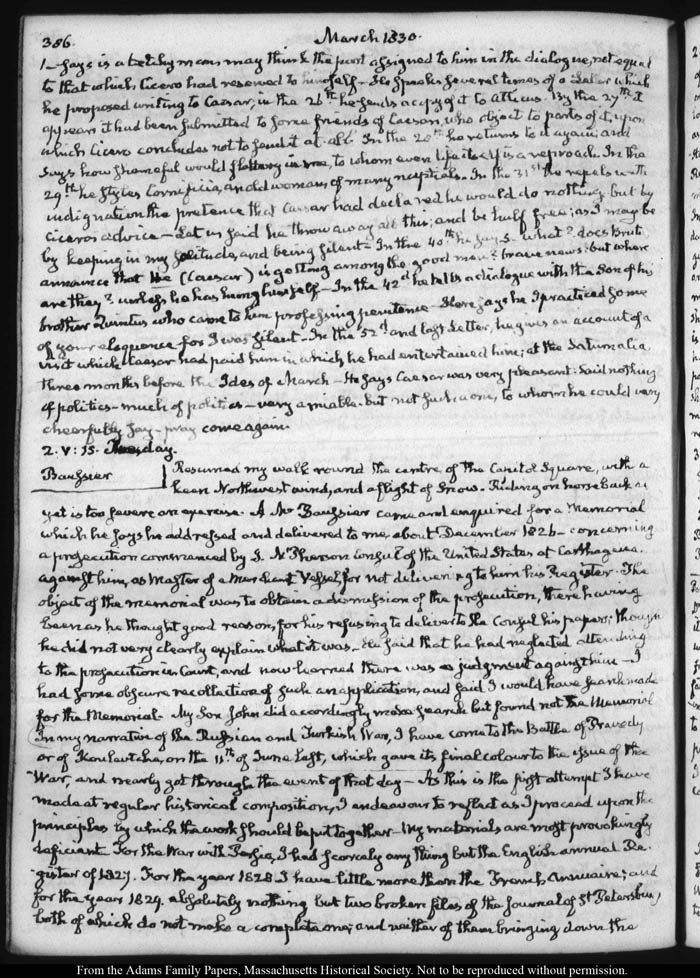 386.
March 1830.
1— Says is a tetchy man may think the part assigned to him in the dialogue, not equal
to that which Cicero had reserved to himself— He speaks several times of a Letter which
he proposed writing to Caesar; in the 26th he sends a copy of it to Atticus. By the 27th it
appears it had been submitted to some friends of Caesar, who object to parts of it, upon
which Cicero concludes not to send it at all. In the 28th he returns to it again; and
says how shameful would flattery in me, to whom even life itself is a reproach. In the
29th he styles Cornificia, an old woman of many nuptials. In the 31st he repels with
indignation the pretence that Caesar had declared he would do nothing but by
Cicero's advice— Let us said he throw away all this; and be half free; as I may be
by keeping in my solitude, and being silent— In the 40th he says— what? does Brutus
announce that he (Caesar) is getting among the good men? brave news: but where
are they? unless he has hung himself— In the 42d he tells a dialogue with the Son of his
brother Quintus who came to him professing penitence— Here says he I practiced some
of your eloquence for I was silent— In the 52d and last Letter, he gives an account of a
visit which Caesar had paid him in which he had entertained him; at the Saturnalia
three months before the Ides of March— He says Caesar was very pleasant: said nothing
of politics— much of — very amiable. but not such a one, to whom he could very
cheerfully say— pray come again.
2. V: 15. Tuesday.
Baussier
Resumed my walk round the centre of the Capitol Square, with a
keen Northwest wind, and a flight of snow. Riding on horseback as
yet is too severe an exercise. A Mr Baussier came and enquired for a Memorial
which he says he addressed and delivered to me, about December 1826— concerning
a prosecution commenced by J. McPherson Consul of the United States at Carthagena.
against him, as Master of a Merchant Vessel, for not delivering to him his Register. The
object of the memorial was to obtain a dismission of the prosecution, there having
been as he thought good reason, for his refusing to deliver to the Consul his papers; though
he did not very clearly explain what it was— He said that he had neglected attending
to the prosecution in Court, and now learned there was a judgment against him— I
had some obscure recollection of such an application, and said I would have search made
for the Memorial— My Son John did accordingly make search but found not the Memorial
In my narrative of the Russian and Turkish War, I have come to the Battle of Pravady
or of Koulautcha, on the 11th of June last, which gave its final colour to the issue of the
War, and nearly got through the event of that day— As this is the first attempt I have
made at regular historical composition, I endeavour to reflect as I proceed upon the
principles by which the work should be put together— My materials are most provokingly
deficient. For the War with Persia, I had scarcely any thing but the English annual Re-
gister of 1827. For the year 1828 I have little more than the French Annuaire; and
for the year 1829. absolutely nothing but two broken files of the Journal of St Petersburg,
both of which do not make a complete one; and neither of them bringing down the
From the Adams Family Papers, Massachusetts Historical Society. Not to be reproduced without permission.